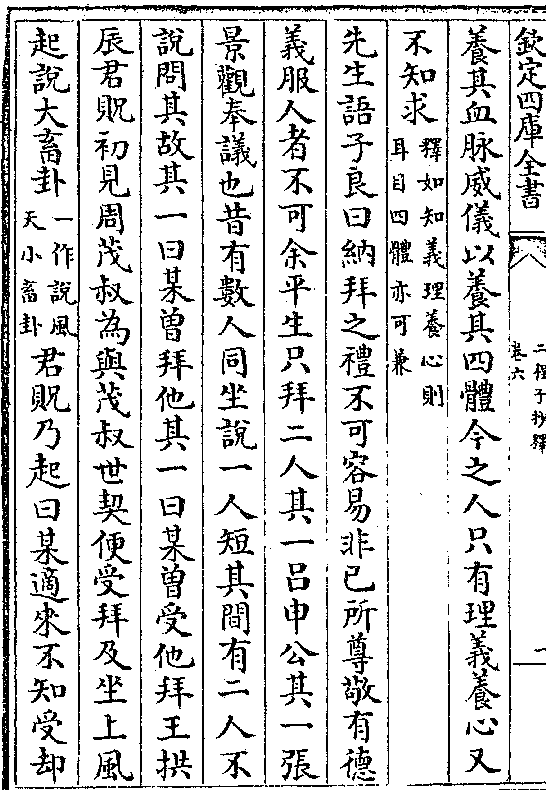 欽定四庫全書
二程子抄釋
卷六
一
養其血脉威儀以養其四體今之人只有理義養心又
不知求
釋如知義理養心則
耳目四體亦可兼
先生語子良曰納拜之禮不可容易非已所尊敬有德
義服人者不可余平生只拜二人其一呂申公其一張
景觀奉議也昔有數人同坐說一人短其間有二人不
說問其故其一曰某曾拜他其一曰某曾受他拜王拱
辰君貺初見周茂叔為與茂叔世契便受拜及坐上風
起說大畜卦
一作說風
天小畜卦
君貺乃起曰某適來不知受却